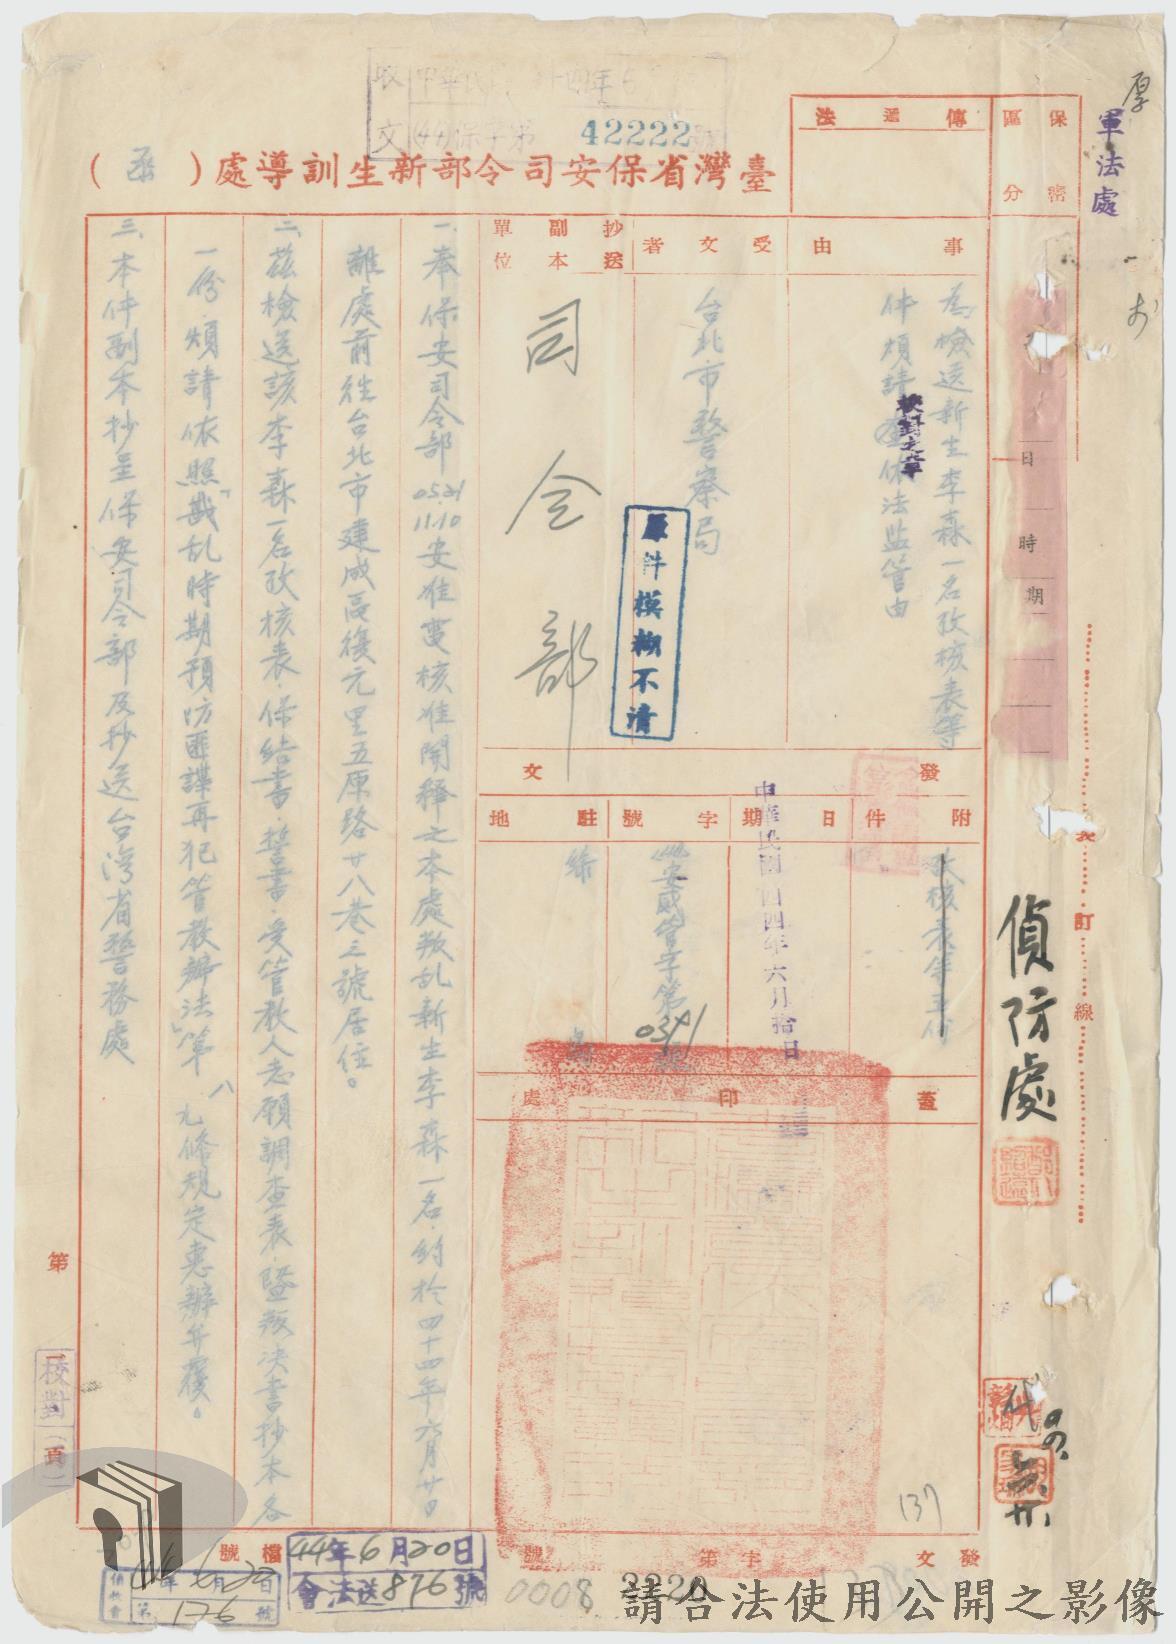 厚
軍法處
收 中華民 四年6
文 (44)保字第42222號
臺灣省保安司令部新生訓導處(函)
保密
區分
傳遞法
事由
為檢送新生李森一名攷核表等
件煩請查依法監管由
校對之章
受文者
台北市警察局
抄送副本單位
司令部
原件模糊不清
日
時
期
發文
附件
攷核表等五份
日期
中華民國四四年六月拾日
字號
安貳管字第0391號
駐地
綠島
蓋印處
一、奉保安司令部0521 1110安准夏核准開釋之本處叛乱新生李森一名,約於四十四年六月廿日
離處前往台北市建成區復元里五原路廿八巷三號居住。
二、茲檢送該李森一名攷核表、保結書、誓書、受管教人志願調查表、暨叛決書抄本各
一份,煩請依照「戡乱時期預防匪諜再犯管教辦法」第八九條規定惠辦并覆。
三、本件副本抄呈保安司令部及抄送台灣省警務處
訂線
偵防處
代
137
第 頁
校對
檔號
44年6月20日
會法送876號
44年6月22日
第176號
發文 字第 號
0008 2220
請合法使用公開之影像